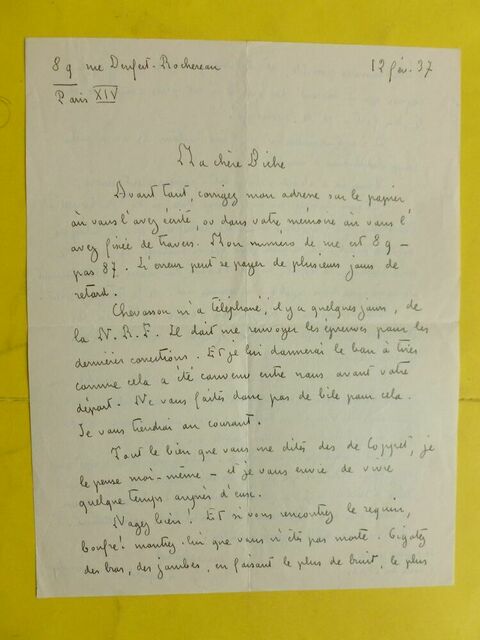 89 rue Denfert-Rochereau 12 fév. 37
Paris XIV
Ma chère Biche
Avant tout, corrigez mon adresse sur le papier
où vous l'avez écrite, ou dans votre mémoire où vous l'
avez fixée de travers. Mon numéro de rue est 89 –
pas 87. L'erreur peut se payer de plusieurs jours de
retard.
Chevasson m'a téléphoné, il y a quelques jours, de
la N.R.F. Il doit me renvoyer les épreuves pour les
dernières corrections. Et je lui donnerai le bon à tirer
comme cela a été convenu entre nous avant votre
départ. Ne vous faites donc pas de bile pour cela.
Je vous tiendrai au courant.
Tout le bien que vous me dites des de Coppet, je
le pense moi-même – et je vous envie de vivre
quelque temps auprès d'eux.
Nagez bien! Et si vous rencontrez le requin,
montrez-lui que vous n'êtes pas morte. Gigotez
des bras, des jambes, en faisant le plus de bruit, le plus